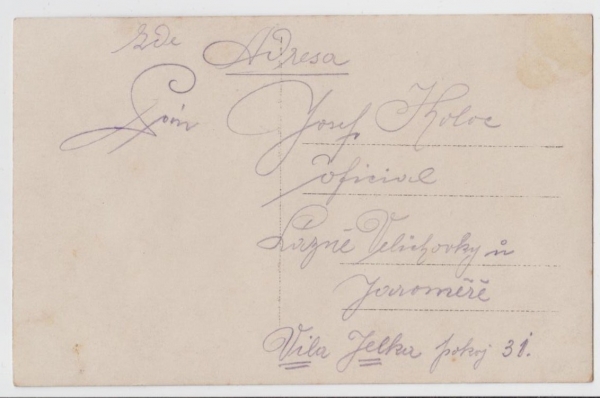 Zde Adresa
Pán Josef Koloc
oficial
Lázně Velichovky u
Jaroměře
Vila Jelka pokoj 31.